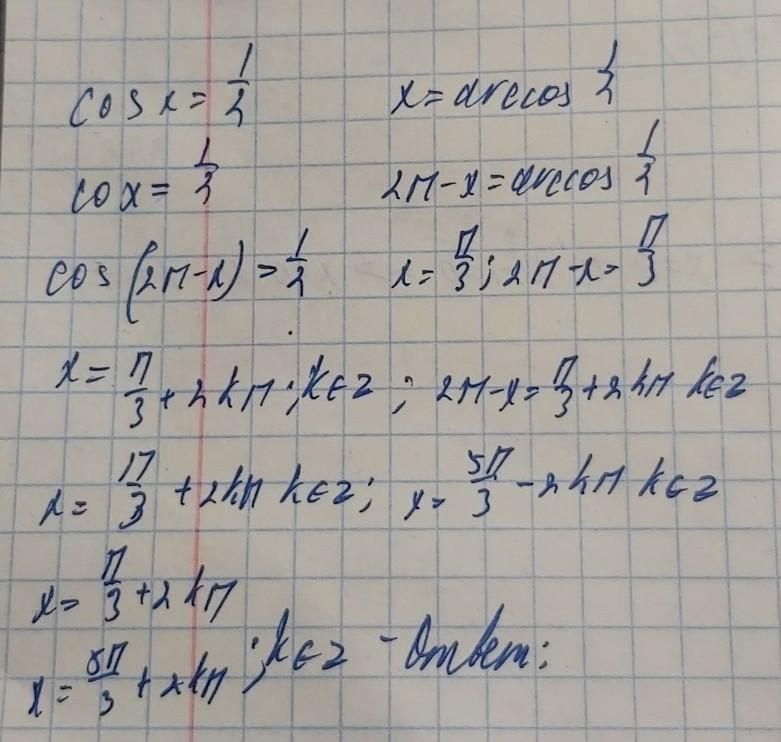 cos x = 1/2    x = arccos 1/2
cox = 1/2    2π - x = arccos 1/2
cos (2π - x) = 1/2    x = π/3 ; 2π - x = π/3
x = π/3 + 2kπ ; k∈z ; 2π - x = π/3 + 2kπ k∈z
x = π/3 + 2kπ k∈z ; x = 5π/3 - 2kπ k∈z
x = π/3 + 2kπ
x = 5π/3 + 2kπ ; k∈z - Ответ: